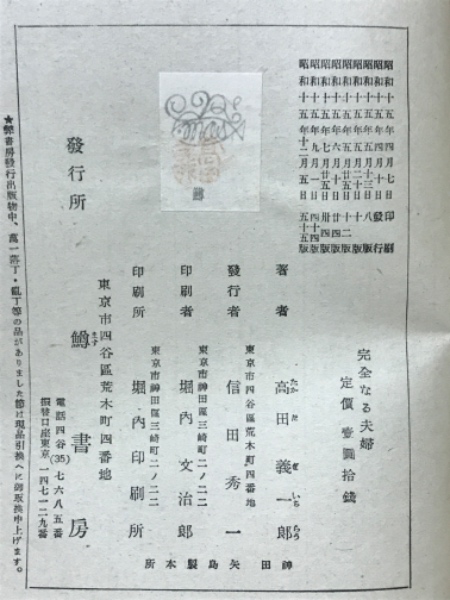 完全なる夫婦
定價 壹圓拾錢
昭和十五年四月七日印刷
昭和十五年四月十日發行
昭和十五年五月十三日八版
昭和十五年五月二十日十版
昭和十五年五月廿五日十二版
昭和十五年六月十日廿四版
昭和十五年七月廿五日卅四版
昭和十五年九月一日四十四版
昭和十五年十二月五日五十五版
著者 高田義一郎
たかだぎいちらう
東京市四谷區荒木町四番地
發行者 信田秀一
東京市神田區三崎町二ノ二二
印刷者 堀内文治郎
東京市神田區三崎町二ノ二二
印刷所 堀内印刷所
神田 矢島製本所
發行所
東京市四谷區荒木町四番地
鱒書房
ます
電話四谷(35)七六八五番
振替口座東京一四七一二九番
★弊書房發行出版物中、萬一落丁・亂丁等の品がありました節は現品引換へに御取換申上げます。